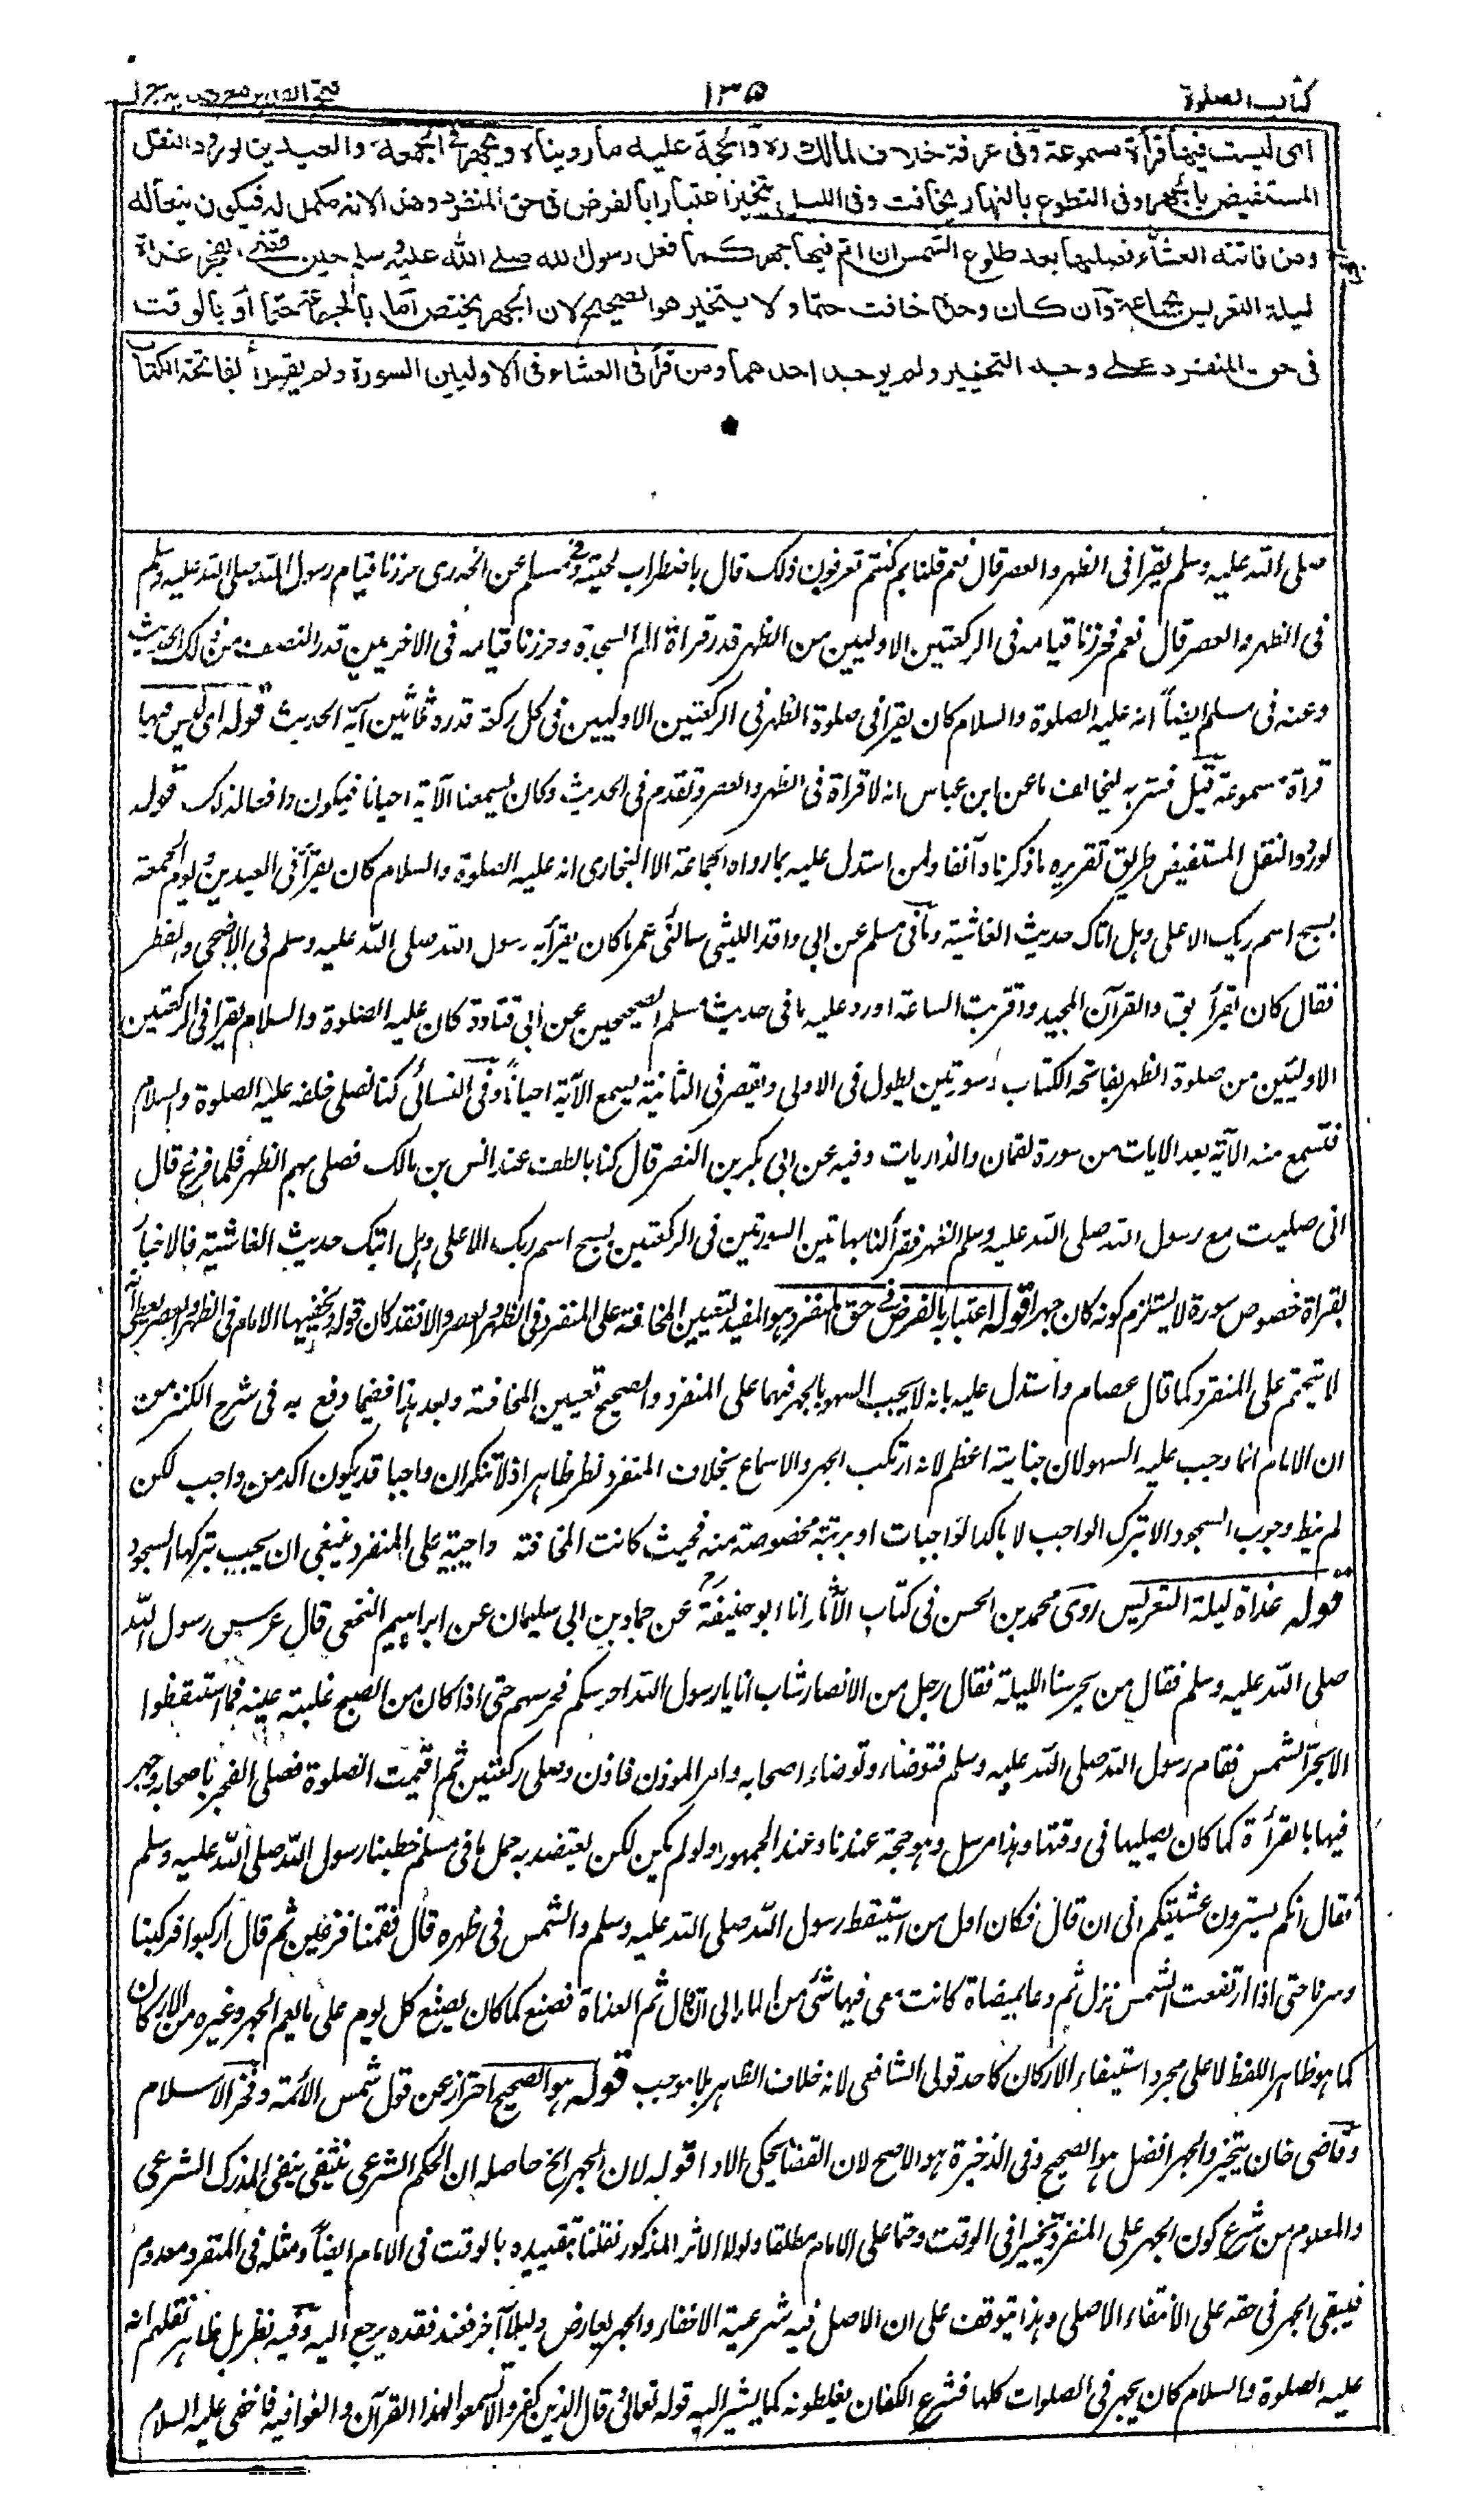 كتاب الصلوة ١٣٥ فتح القدير مع هدايه ج١
اى ليست فيها قرأة مسموعة وفى عرفة خلاف لمالك ره والحجة عليه ما رويناه ويجهر فى الجمعة والعيدين لورود النقل
المستفيض بالجهر وفى التطوع بالنهار يخافت وفى الليل يتخير اعتبارا بالفرض فى حق المنفرد وهذا لانه مكمل له فيكون تبعا له
ومن فاتته العشاء فصليها بعد طلوع الشمس ان ام فيها جهر كما فعل رسول لله صلى الله عليه وسلم حين قضى الفجر غداة
ليلة التعريس بجماعة وان كان وحده خافت حتما ولا يتخير هو الصحيح لان الجهر يختص اما بالجماعة حتما او بالوقت
فى حق المنفرد على وجه التخيير ولم يوجد احدهما ومن قرأ فى العشاء فى الاوليين السورة ولم يقرأ بفاتحة الكتاب
صلى الله عليه وسلم يقرا فى الظهر والعصر قال نعم قلنا بم كنتم تعرفون ذلك قال باضطراب لحيته وفى مسلم عن الخدرى حزرنا قيام رسول الله صلى الله عليه وسلم
فى الظهر والعصر قال نعم فحزرنا قيامه فى الركعتين الاوليين من الظهر قدر قراة الم السجدة وحزرنا قيامه فى الاخريين قدر النصف من ذلك الحديث
وعنه فى مسلم ايضاً انه عليه الصلوة والسلام كان يقرا فى صلوة الظهر فى الركعتين الاوليين فى كل ركعة قدر ثلثين آية الحديث قوله اى ليس فيها
قراة مسموعة قيل فسر به ليخالف ما عن ابن عباس انه لا قراة فى الظهر والعصر وتقدم فى الحديث وكان يسمعنا الآية احيانا فيكون دافعا لذلك قوله
لورود النقل المستفيض طريق تقريره ما ذكرناه آنفا ولمن استدل عليه بما رواه الجماعة الا البخارى انه عليه الصلوة والسلام كان يقرأ فى العيدين ويوم الجمعة
بسبح اسم ربك الاعلى وهل اتاك حديث الغاشية وما فى مسلم عن ابى واقد الليثى سالنى عمر ما كان يقرأ به رسول الله صلى الله عليه وسلم فى الاضحى والفطر
فقال كان يقرأ بق والقرآن المجيد واقتربت الساعة اورد عليه ما فى حديث مسلم الصحيحين عن ابى قتادة كان عليه الصلوة والسلام يقرا فى الركعتين
الاوليين من صلوة الظهر بفاتحة الكتاب وسورتين يطول فى الاولى ويقصر فى الثانية يسمع الآية احياناً وفى النسائى كنا نصلى خلفه عليه الصلوة والسلام
فنسمع منه الآية بعد الايات من سورة لقمان والذاريات وفيه عن ابى بكر بن النضر قال كنا بالطف عند انس بن مالك فصلى بهم الظهر فلما فرغ قال
انى صليت مع رسول الله صلى الله عليه وسلم الظهر فقرأ لنا بهاتين السورتين فى الركعتين بسبح اسم ربك الاعلى وهل اتيك حديث الغاشية فالاخبار
بقراة خصوص سورة لا يستلزم كونه كان جهرا قوله اعتبارا بالفرض فى حق المنفرد هو المفيد لتعيين المخافتة على المنفرد فى الظهر والعصر والا فقد كان قوله ويخفيها الامام فى الظهر والعصر يعطى انه
لا يتحتم على المنفرد كما قال عصام واستدل عليه بانه لا يجب السهو بالجهر فيهما على المنفرد والصحيح تعيين المخافتة وبعد هذا ففيما دفع به فى شرح الكنز من
ان الامام انما وجب عليه السهو لان جنايته اعظم لانه ارتكب الجهر والاسماع بخلاف المنفرد نظر ظاهر اذ لا ننكر ان واجبا قد يكون اكد من واجب لكن
لم ينط وجوب السجود الا بترك الواجب لا باكد الواجبات او برتبة مخصوصة منه فحيث كانت المخافتة واجبة على المنفرد ينبغى ان يجب بتركها السجود
قوله غداة ليلة التعريس روى محمد بن الحسن فى كتاب الآثار انا ابو حنيفة رح عن حماد بن ابى سليمان عن ابراهيم النخعى قال عرس رسول الله
صلى الله عليه وسلم فقال من يحرسنا الليلة فقال رجل من الانصار شاب انا يا رسول الله احرسكم فحرسهم حتى اذا كان من الصبح غلبته عينه فما استيقظوا
الا بحر الشمس فقام رسول الله صلى الله عليه وسلم فتوضاء وتوضاء اصحابه وامر الموذن فاذن وصلى ركعتين ثم اقيمت الصلوة فصلى الفجر باصحابه وجهر
فيها بالقرأة كما كان يصليها فى وقتها وهذا مرسل وهو حجة عندنا وعند الجمهور ولو لم يكن لكن يعتضد به حمل ما فى مسلم خطبنا رسول الله صلى الله عليه وسلم
فقال انكم تسيرون عشيتكم الى ان قال فكان اول من استيقظ رسول الله صلى الله عليه وسلم والشمس فى ظهره قال فقمنا فزعين ثم قال اركبوا فركبنا
وسرنا حتى اذا ارتفعت الشمس نزل ثم دعا بميضاة كانت معى فيها شئ من الماء الى ان قال ثم الغداة فصنع كما كان يصنع كل يوم على ما يعم الجهر وغيره من الاركان
كما هو ظاهر اللفظ لا على مجرد استيفاء الاركان كاحد قولى الشافعى لانه خلاف الظاهر بلا موجب قوله هو الصحيح احتراز عن قول شمس الائمة وفخر الاسلام
وقاضى خان يتخير والجهر افضل هو الصحيح وفى الذخيرة هو الاصح لان القضا يحكى الادا قوله لان الجهر الخ حاصله ان الحكم الشرعى ينتفى بنفى المدرك الشرعى
والمعلوم من شرع كون الجهر على المنفرد تخييرا فى الوقت وحتما على الامام مطلقا ولولا الاثر المذكور لقلنا بتقييده بالوقت فى الامام ايضاً ومثله فى المنفرد معدوم
فيبقى الجهر فى حقه على الانتفاء الاصلى وهذا يتوقف على ان الاصل فيه شرعية الاخفاء والجهر يعارض دليلا آخر فعند فقده يرجع اليه وفيه نظر بل ظاهر نقلهم انه
عليه الصلوة والسلام كان يجهر فى الصلوات كلها فشرع الكفار يغلطونه كما يشير اليه قوله تعالى قال الذين كفروا لا تسمعوا لهذا القرآن والغوا فيه فاخفى عليه السلام